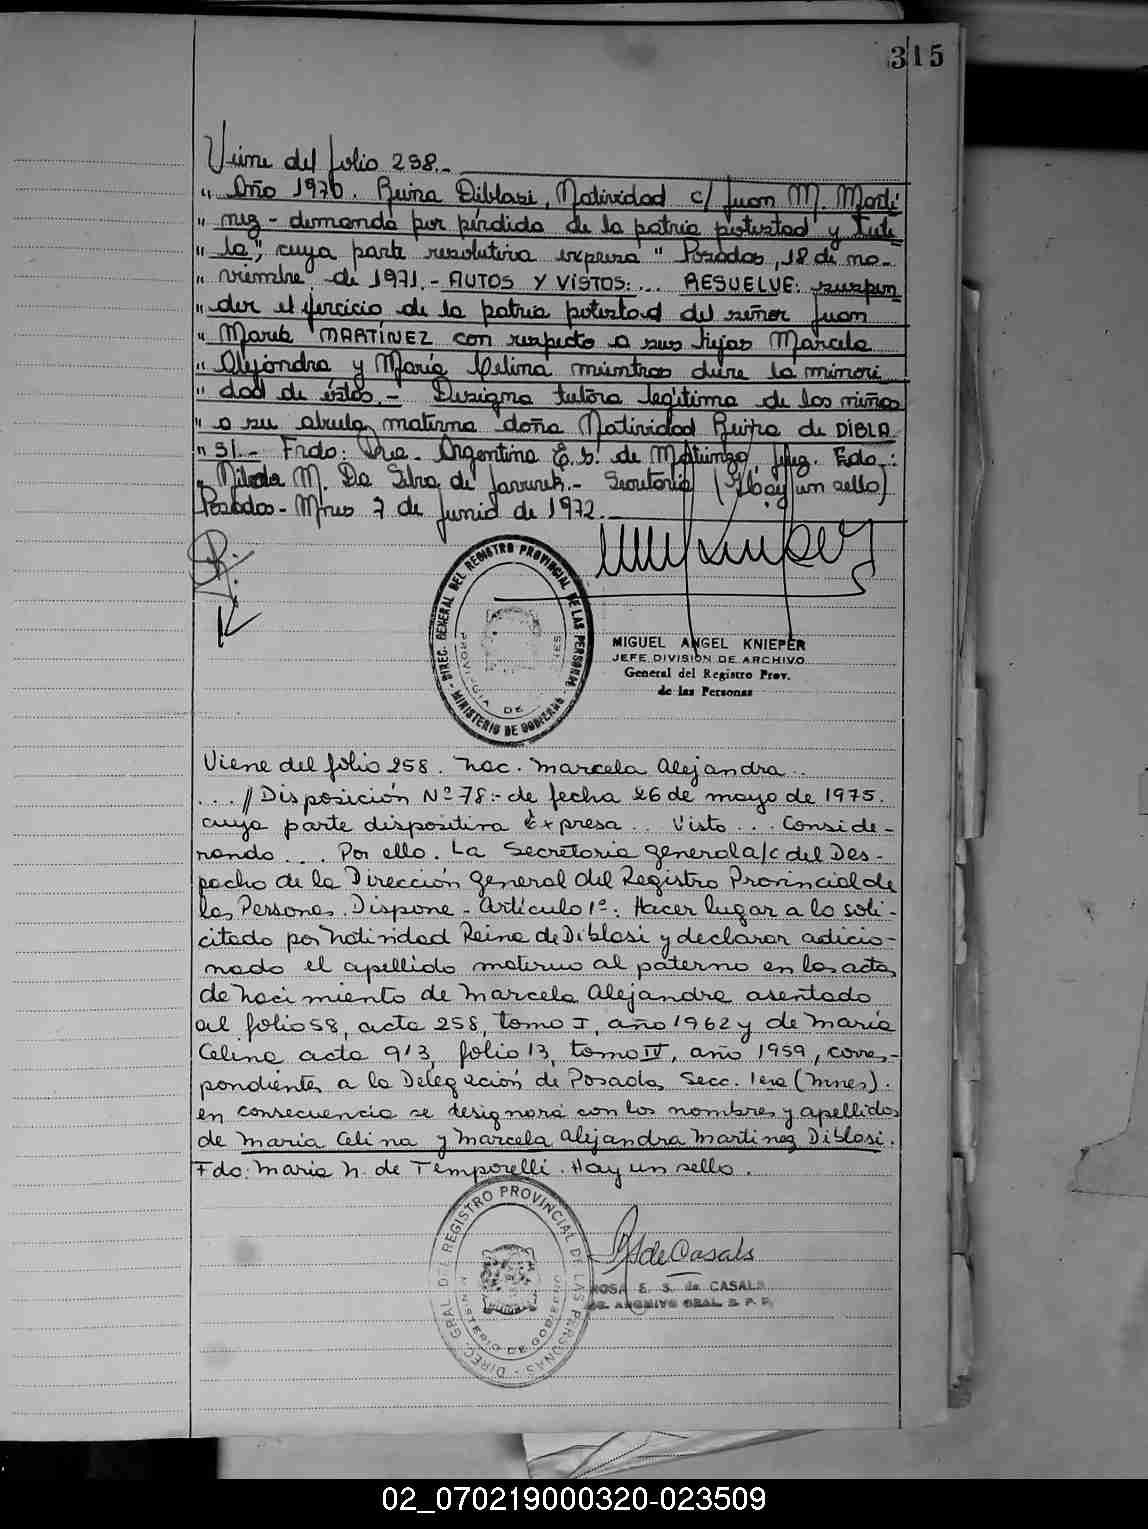 315
Viene del folio 258.-
" Año 1970. Reina Diblasi, Natividad c/ Juan M. Martí
" nez - demanda por pérdida de la patria potestad y tute
" la", cuya parte resolutiva expresa " Posadas, 18 de no-
" viembre de 1971.- AUTOS Y VISTOS:... RESUELVE: suspen
" der el ejercicio de la patria potestad del señor Juan
" Mario MARTÍNEZ con respecto a sus hijas Marcela
" Alejandra y María Celina mientras dure la minori
" dad de éstas.- Designa tutora legítima de las niñas
" a su abuela materna doña Natividad Reina de DIBLA
" SI.- Frdo: Dra. Argentina E. S. de Juez. Fdo.:
" M. Da Silva de - Secretaria (Hay un sello)
Posadas - Mnes 7 de Junio de 1972.
DIREC. GENERAL DEL REGISTRO PROVINCIAL DE LAS PERSONAS - MINISTERIO DE GOBIERNO
PROVINCIA DE MISIONES
MIGUEL ANGEL KNIEPER
JEFE DIVISION DE ARCHIVO
General del Registro Prov.
de las Personas
Viene del folio 258. Nac. Marcela Alejandra..
...// Disposición Nº 78:- de fecha 26 de mayo de 1975.
cuya parte dispositiva expresa.. Visto... Conside-
rando.... Por ello. La Secretaria general a/c del Des-
pacho de la Dirección General del Registro Provincial de
las Personas. Dispone - Artículo 1º: Hacer lugar a lo soli-
citado por Natividad Reina de Diblasi y declarar adicio-
nado el apellido materno al paterno en las actas
de nacimiento de Marcela Alejandra asentado
al folio 58, acta 258, tomo I, año 1962 y de María
Celina acta 913, folio 13, tomo IV, año 1959, corres-
pondientes a la Delegación de Posadas Secc. 1era (Mnes).
en consecuencia se designará con los nombres y apellidos
de María Celina y Marcela Alejandra Martinez Diblasi.
Fdo: Maria N. de Temporelli. Hay un sello.
DIREC. GRAL. DEL REGISTRO PROVINCIAL DE LAS PERSONAS
MINISTERIO DE GOBIERNO
de Casals
ROSA E. S. de CASALS
ARCHIVO GRAL. R. P. P.
02_070219000320-023509